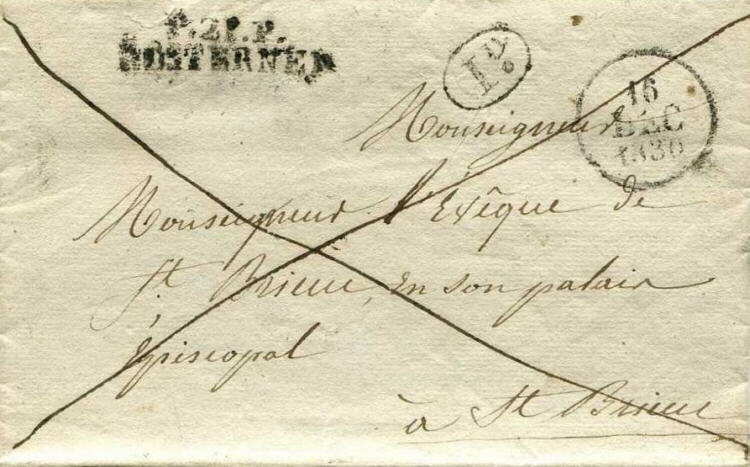 P.21.P.
ROSTRENEN
1D
16
DEC
1830
Monseigneur
Monseigneur l'Evêque de
St Brieuc, en son palais
Épiscopal
à St Brieuc